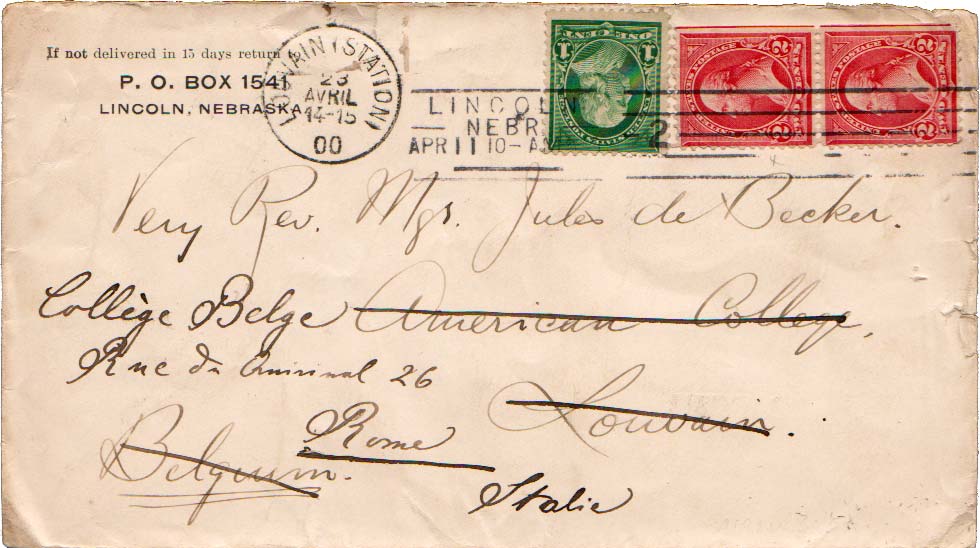 If not delivered in 15 days return to
P. O. BOX 1541
LINCOLN, NEBRASKA
LOUVAIN (STATION)
23
AVRIL
14-15
00
LINCOLN
NEBR
APR 11 10-A
2
ONE CENT
1 1
2 2
2 2
Very Rev. Mgr. Jules de Becker.
Collège Belge American College,
Rue du Quirinal 26
Louvain.
Rome
Belgium.
Italie